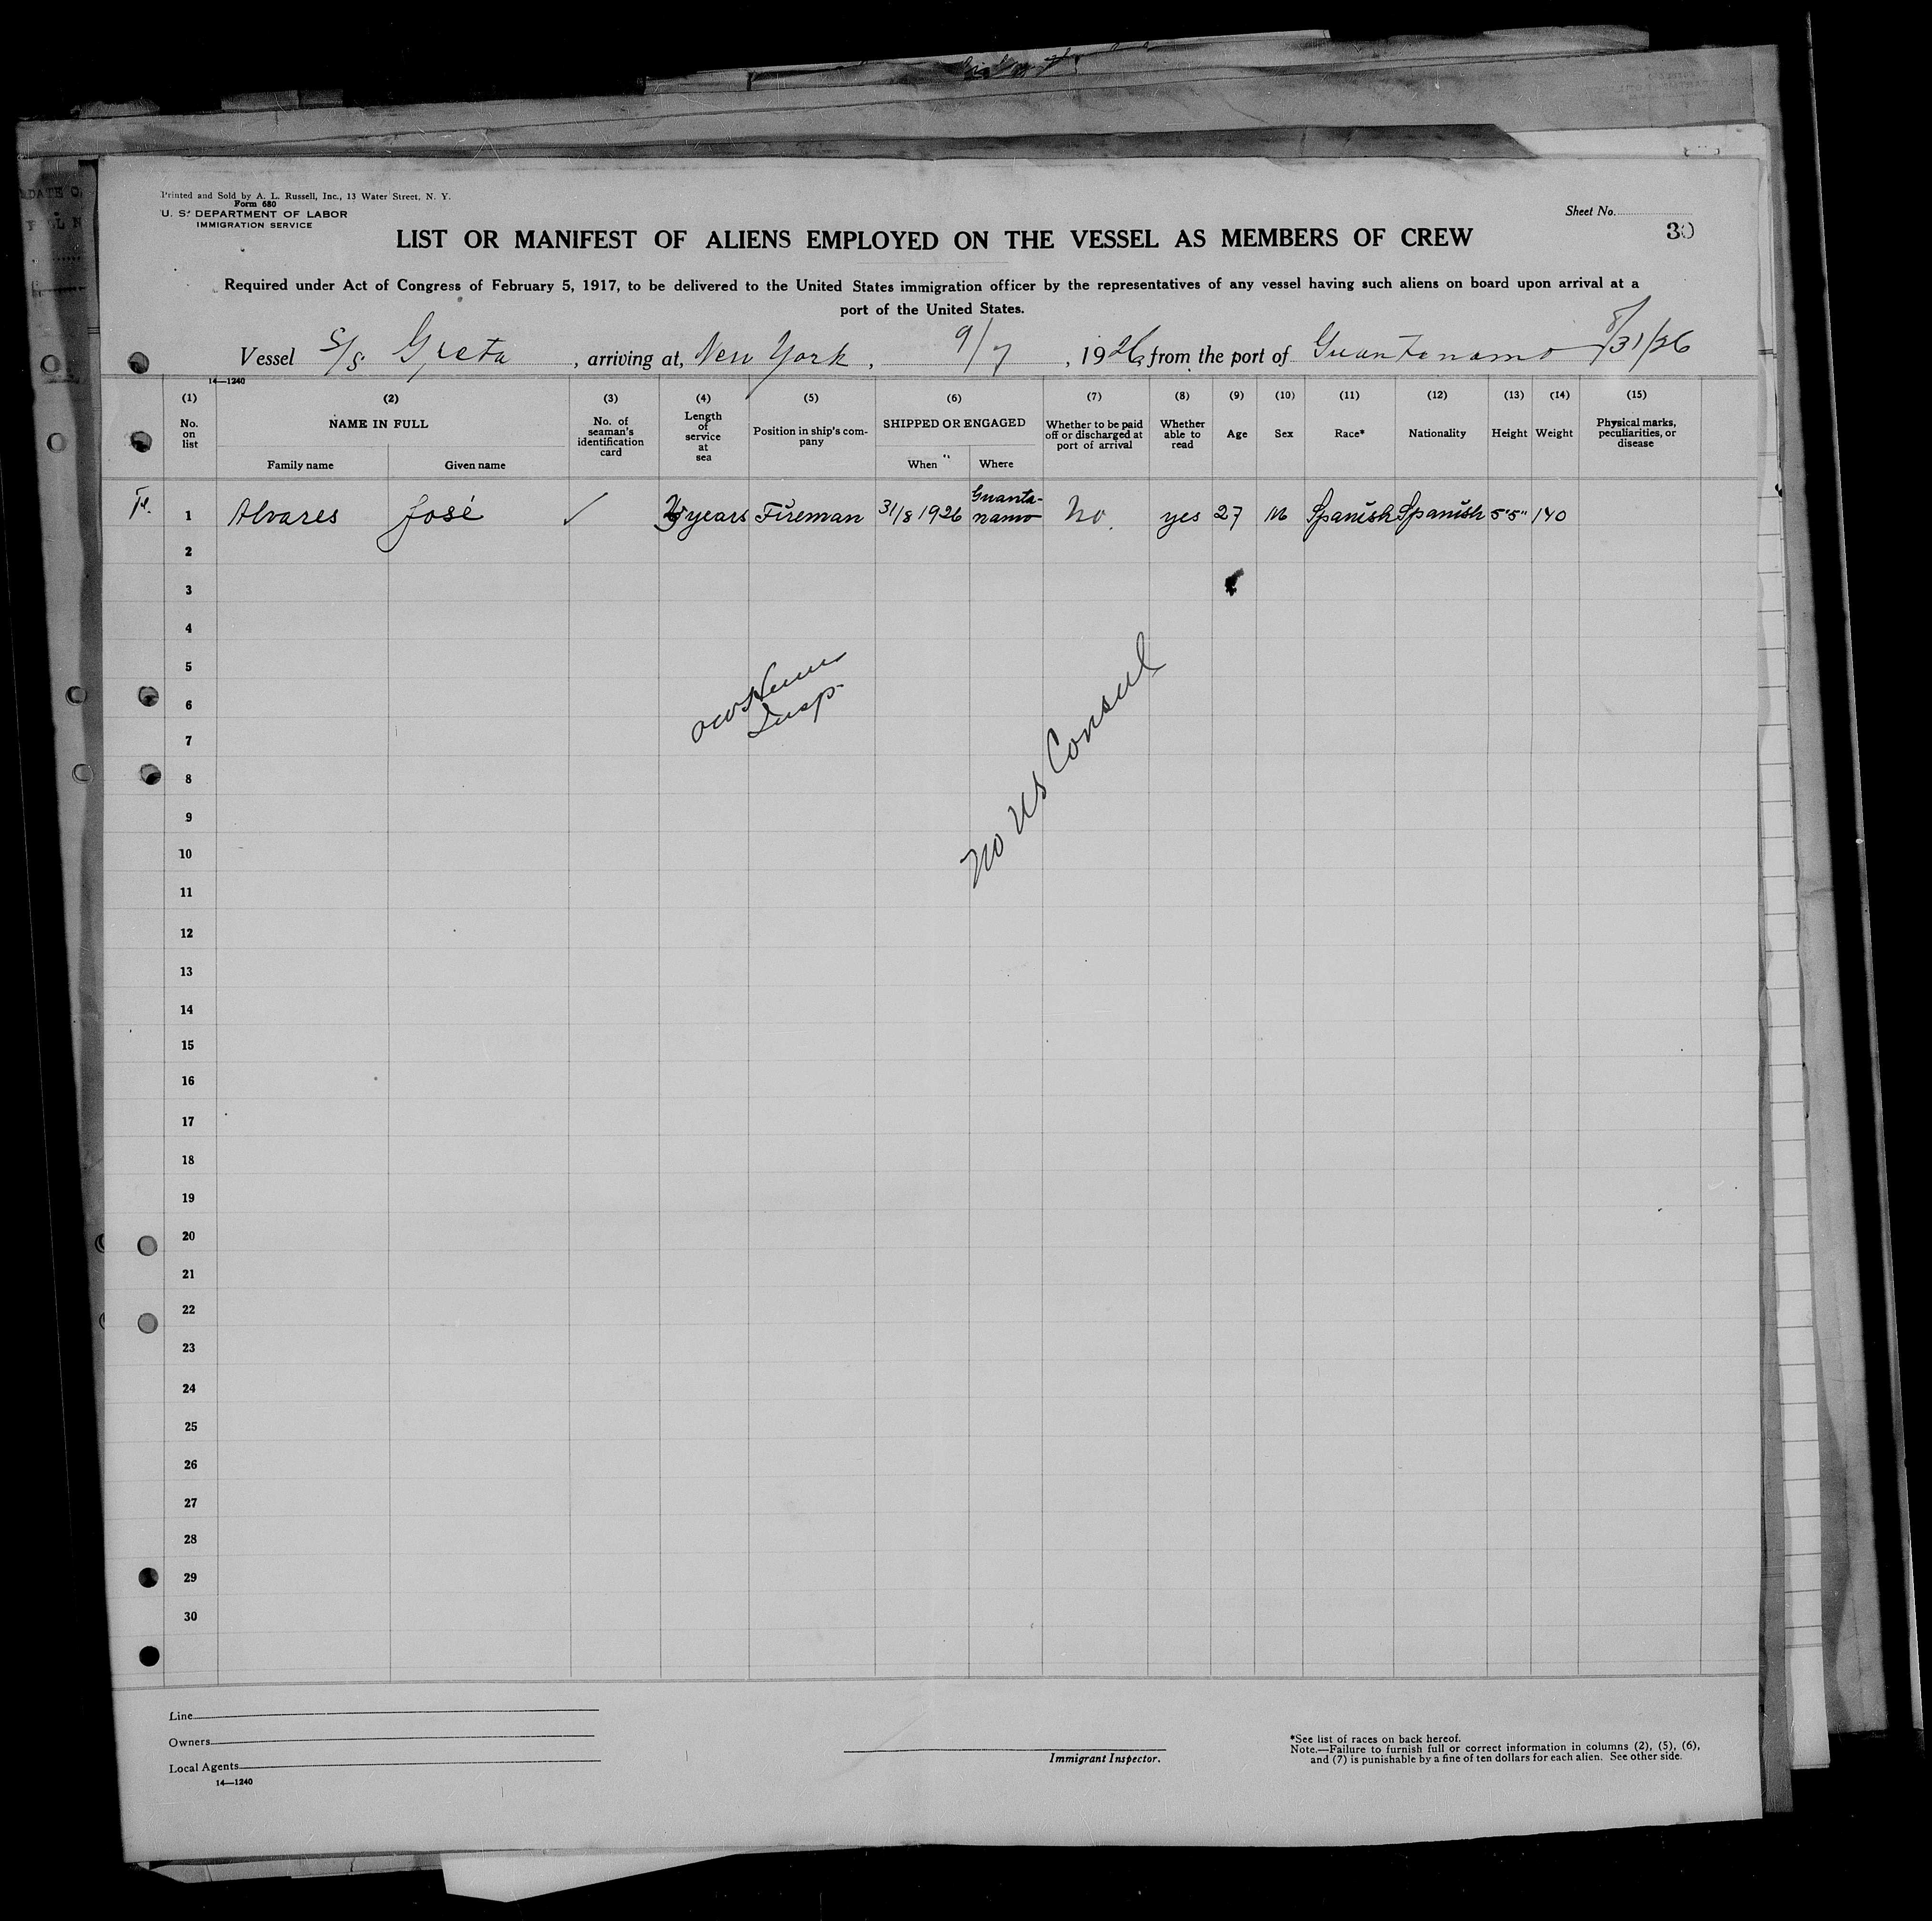 Printed and Sold by A. L. Russell, Inc., 13 Water Street, N. Y.
Form 680
U. S. DEPARTMENT OF LABOR
IMMIGRATION SERVICE
Sheet No.
30
LIST OR MANIFEST OF ALIENS EMPLOYED ON THE VESSEL AS MEMBERS OF CREW
Required under Act of Congress of February 5, 1917, to be delivered to the United States immigration officer by the representatives of any vessel having such aliens on board upon arrival at a
port of the United States.
Vessel S/S Greta, arriving at, New York, 9/7, 1926, from the port of Guantanamo 8/31/26
14—1240
(1) (2) (3) (4) (5) (6) (7) (8) (9) (10) (11) (12) (13) (14) (15)
No. on list NAME IN FULL Family name Given name No. of seaman's identification card Length of service at sea Position in ship's company SHIPPED OR ENGAGED When Where Whether to be paid off or discharged at port of arrival Whether able to read Age Sex Race* Nationality Height Weight Physical marks, peculiarities, or disease
1 Alvares José ✓ years Fireman 31/8 1926 Guantanamo No. yes 27 M Spanish Spanish 5'5" 140
2
3
4
5
6
7
8
9
10
11
12
13
14
15
16
17
18
19
20
21
22
23
24
25
26
27
28
29
30
Insp.
No US Consul
Line
Owners
Local Agents
14—1240
Immigrant Inspector.
*See list of races on back hereof.
Note.—Failure to furnish full or correct information in columns (2), (5), (6),
and (7) is punishable by a fine of ten dollars for each alien. See other side.